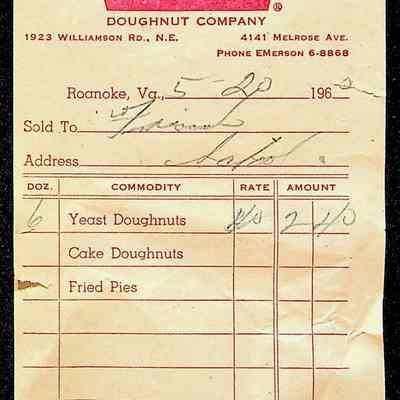 ®
DOUGHNUT COMPANY
1923 WILLIAMSON RD., N.E. 4141 MELROSE AVE.
PHONE EMERSON 6-8868
Roanoke, Va., 5-20 1962
Sold To
Address
DOZ. COMMODITY RATE AMOUNT
6 Yeast Doughnuts 40 2 40
Cake Doughnuts
Fried Pies